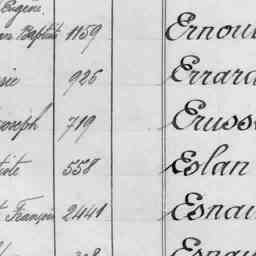 Eugène
Baptiste 1159 Ernou
rie 926 Errard
Joseph 719 Erusse
tiste 558 Eslan
t François 2441 Esnau
Esnau